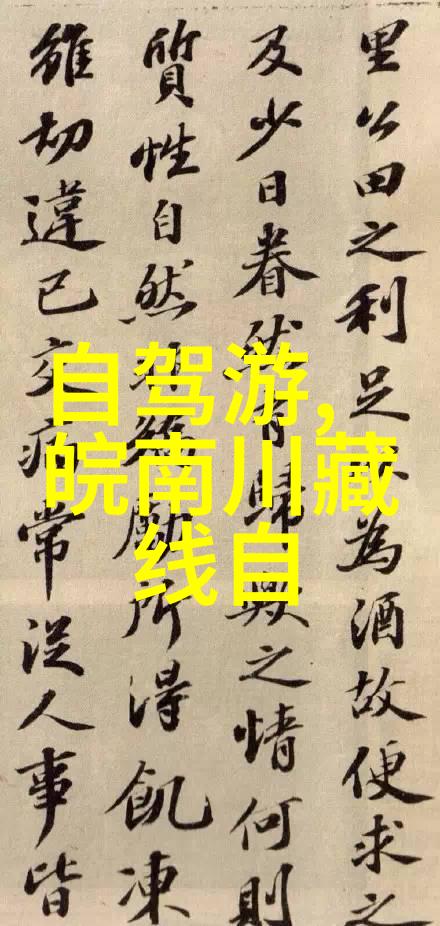 里公田之利足為酒故便求之
及少日眷然有歸歟之情何則
質性自然矯勵所得飢凍
雖切違已交病常從人事皆
自驾游,
皖南川藏
线自